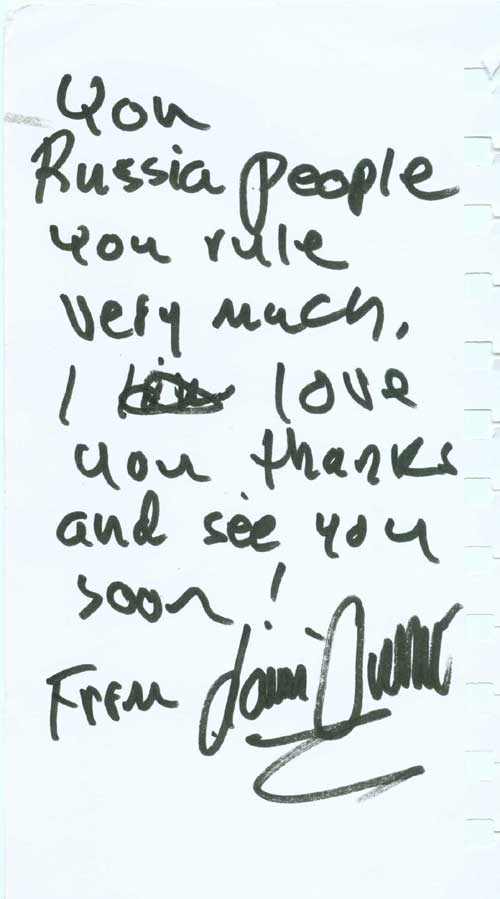 you
Russia people
you rule
very much,
I love
you thanks
and see you
soon!
From